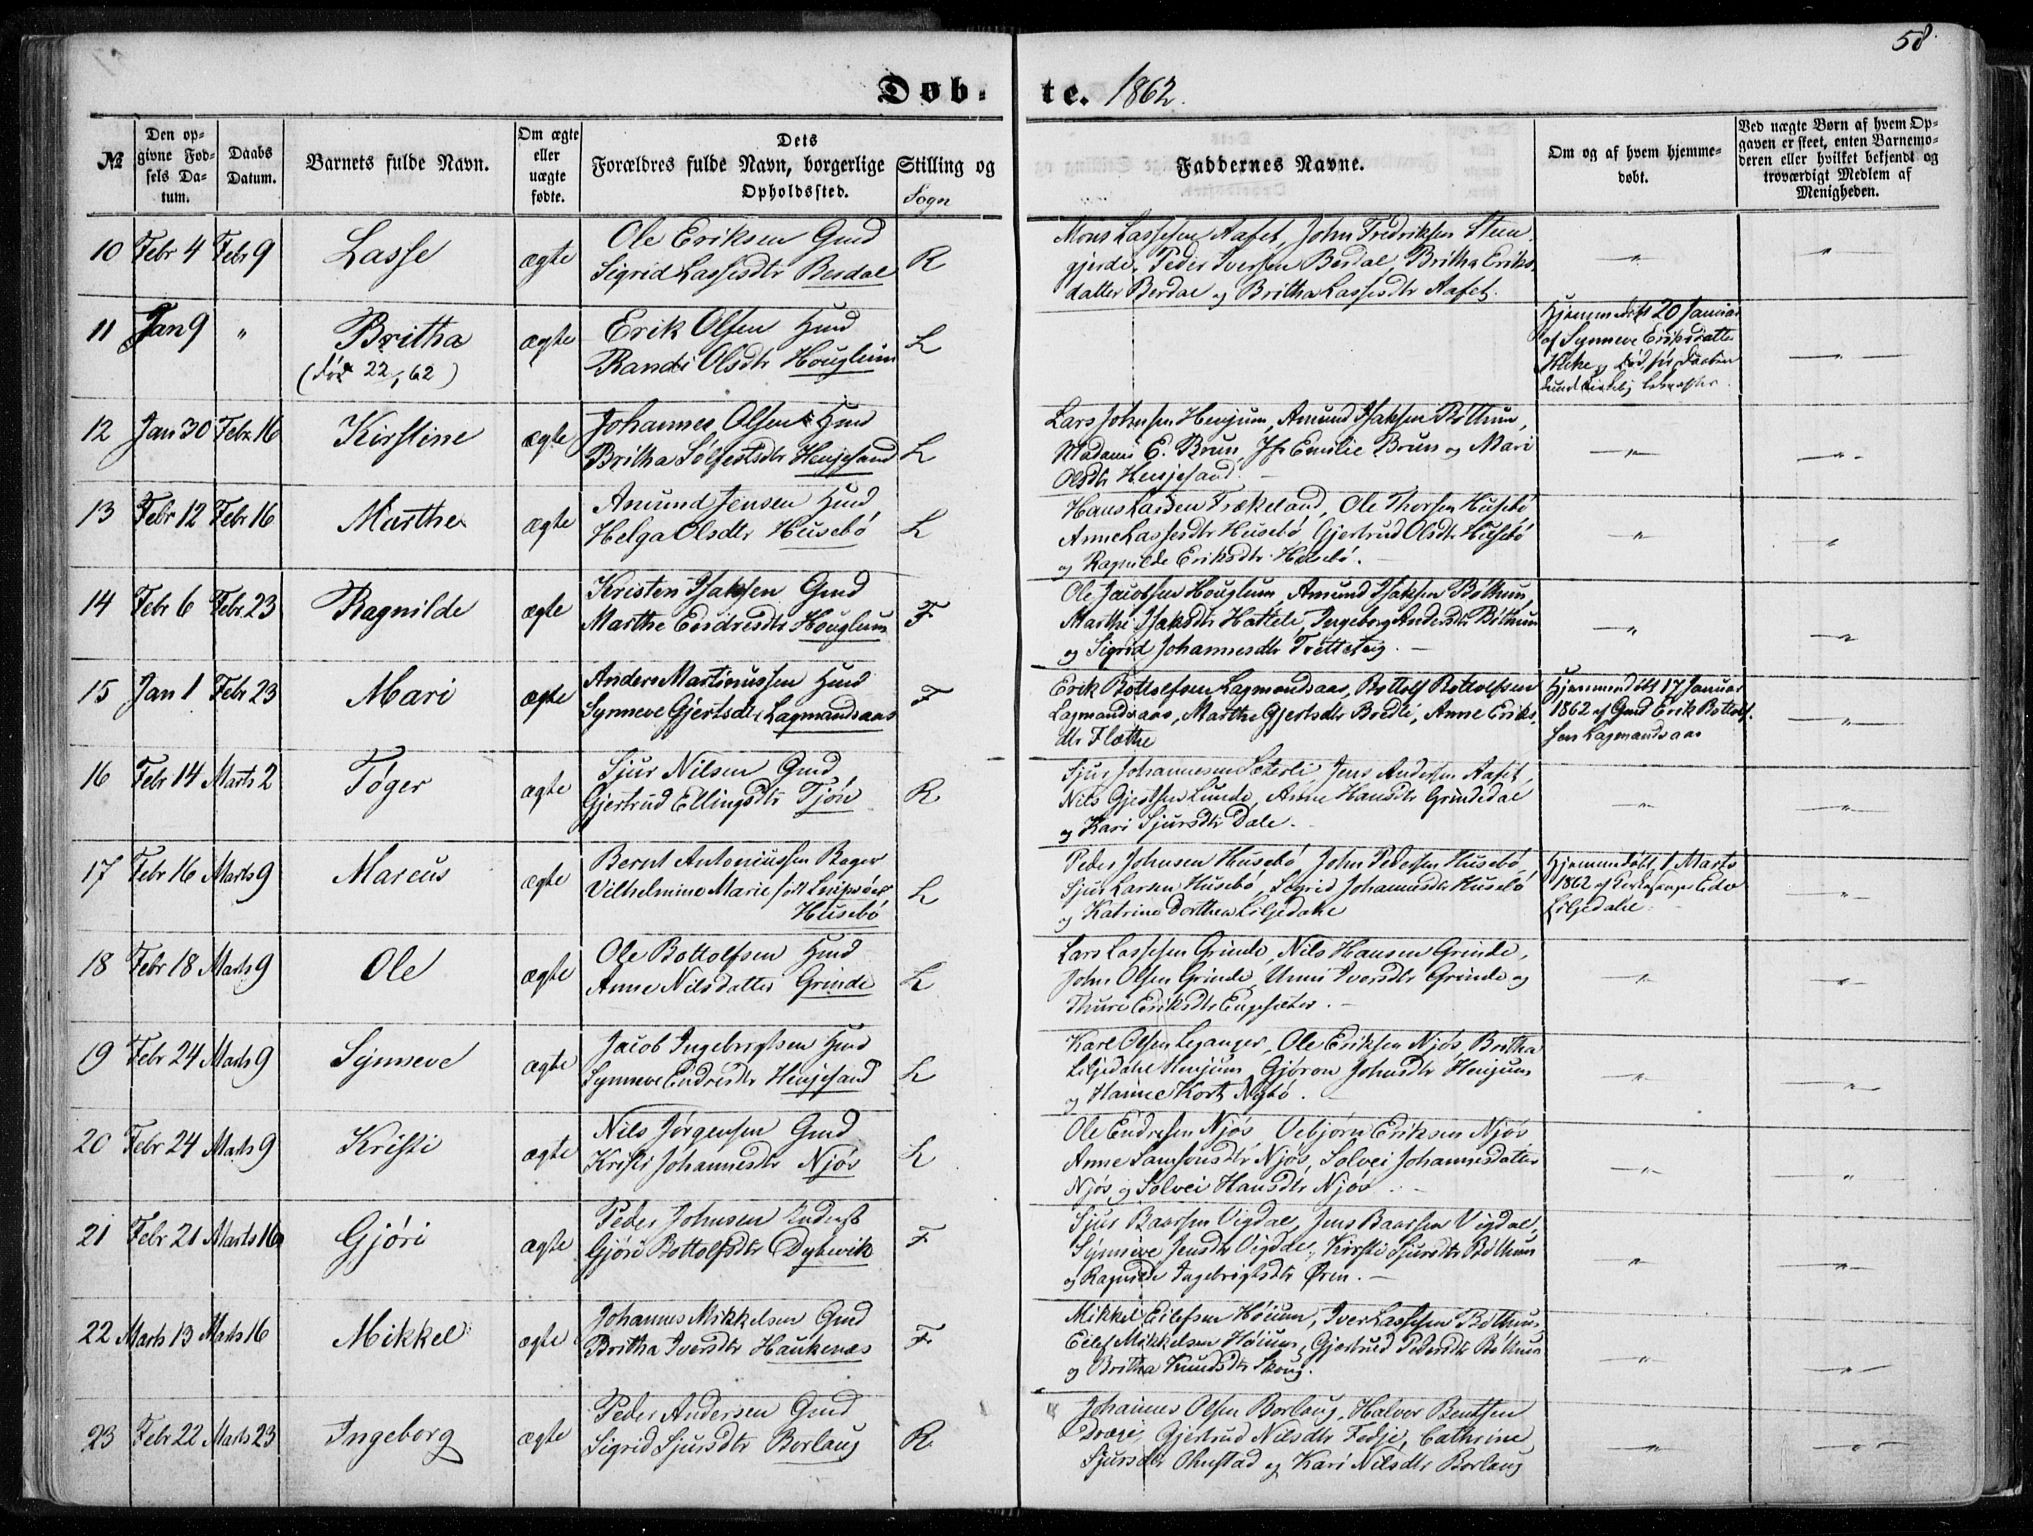 58.
Døb- te. 1862.
№
Den opgivne Fødsels Datum.
Daabs Datum.
Barnets fulde Navn.
Om ægte eller uægte fødte.
Dets Forældres fulde Navn, borgerlige Stilling og Opholdssted.
Sogn
Faddernes Navne.
Om og af hvem hjemmedøbt.
Ved uægte Børn af hvem Opgaven er skeet, enten Barnemoderen eller hvilket bekjendt og troværdigt Medlem af Menigheden.
10 Febr 4 Febr 9 Lasse ægte
Ole Eriksen Gmd
Sigrid Lassesdtr Berdal R
Mons Lassesen Aafet, John Fredriksen Steen
gjerde, Peder Iversen Berdal, Britha Eriks
datter Berdal og Britha Lassesdtr Aafet.
11 Jan 9 " Britha ægte
(død 22/, 62)
Erik Olsen Hmd
Randi Olsdtr Houglum L
Hjemmedøbt 20 Januar
af Synneve Eriksdatter
12 Jan 30 Febr 16 Kirstine ægte
Johannes Olsen Hmd
Britha Sølfestsdtr Henjesand L
Lars Johnsen Henjum, Amund Isaksen Bøthun,
Madame E. Brun, Jfr Emilie Brun og Mari
Olsdtr Henjesand.
13 Febr 12 Febr 16 Marthe ægte
Amund Jensen Hmd
Helga Olsdtr Husebø L
Hans Larsen Frækeland, Ole Thorsen Husebø
Anne Lassesdtr Husebø, Gjertrud Olsdtr Husebø
og Ragnilde Eriksdtr Husebø.
14 Febr 6 Febr 23 Ragnilde ægte
Kristen Isaksen Gmd
Marthe Endresdtr Houglum F
Ole Jacobsen Houglum, Amund Isaksen Bøthun,
Marthe Isaksdtr Hattele, Ingeborg Andersdtr Bøthun
og Sigrid Johannesdtr Tretteteig.
15 Jan 1 Febr 23 Mari ægte
Anders Martinussen Hmd
Synneve Gjertsdtr Lagmandsaas F
Erik Bottolfsen Lagmandsaas, Bottolf Bottolfsen
Lagmandsaas, Marthe Gjertsdtr Bredli, Anne Eriks
dtr Flathe
Hjemmedøbt 17 Januar
1862 af Gmd Erik Bottolf
sen Lagmandsaas
16 Febr 14 Marts 2 Tøger ægte
Sjur Nilsen Gmd
Gjertrud Ellingsdtr Tjøn R
Sjur Johannesen Sæterli, Jens Andersen Aafet,
Nils Gjertsen Lunde, Anne Hansdtr Grindedal
og Kari Sjursdtr Dale.
17 Febr 16 Marts 9 Marcus ægte
Bernt Antoniussen Bager
Vilhelmine Marie født
Husebø L
Peder Johnsen Husebø, John Pedersen Husebø,
Sjur Larsen Husebø, Sigrid Johannesdtr Husebø
og Katrine Dorthea Liljedahl
Hjemmedøbt 1 Marts
1862 af
Liljedahl.
18 Febr 18 Marts 9 Ole ægte
Ole Bottolfsen Hmd
Anne Nilsdatter Grinde L
Lars Lassesen Grinde, Nils Hansen Grinde,
John Olsen Grinde, Unni Iversdtr Grinde og
Thuri Eriksdtr Engesæter.
19 Febr 24 Marts 9 Synneve ægte
Jacob Ingebrigtsen Hmd
Synneve Endresdtr Henjesand L
Karl Olsen Leganger, Ole Eriksen Njøs, Britha
Liljedahl Henjum, Gjøron Johnsdtr Henjum
og Hanne Kort Nybø.
20 Febr 24 Marts 9 Kristi ægte
Nils Jørgensen Gmd
Kristi Johannesdtr Njøs L
Ole Endresen Njøs Vebjørn Eriksen Njøs
Anne Samsonsdtr Njøs, Solvei Johannesdatter
Njøs og Solvei Hansdtr Njøs.
21 Febr 21 Marts 16 Gjøri ægte
Peder Johnsen Inderst
Gjøri Bottolfsdtr Dybevik F
Sjur Baarsen Vigdal, Jens Baarsen Vigdal,
Synneve Jensdtr Vigdal, Kirsti Sjursdtr Bøthun
og Ragnilde Ingebrigtsdtr Øren.
22 Marts 13 Marts 16 Mikkel ægte
Johannes Mikkelsen Gmd
Britha Iversdtr Haukenæs F
Mikkel Eilefsen Høium, Iver Lassesen Bøthun,
Eilef Mikkelsen Høium, Gjertrud Pedersdtr Bøthun
og Britha Knudsdtr Skoug.
23 Febr 22 Marts 23 Ingeborg ægte
Peder Andersen Gmd
Sigrid Sjursdtr Borlaug R
Johannes Olsen Borlaug, Halvor Bentsen
Drægi, Gjertrud Nilsdtr Fedje, Cathrine
Sjursdtr Ohnstad og Kari Nilsdtr Borlaug